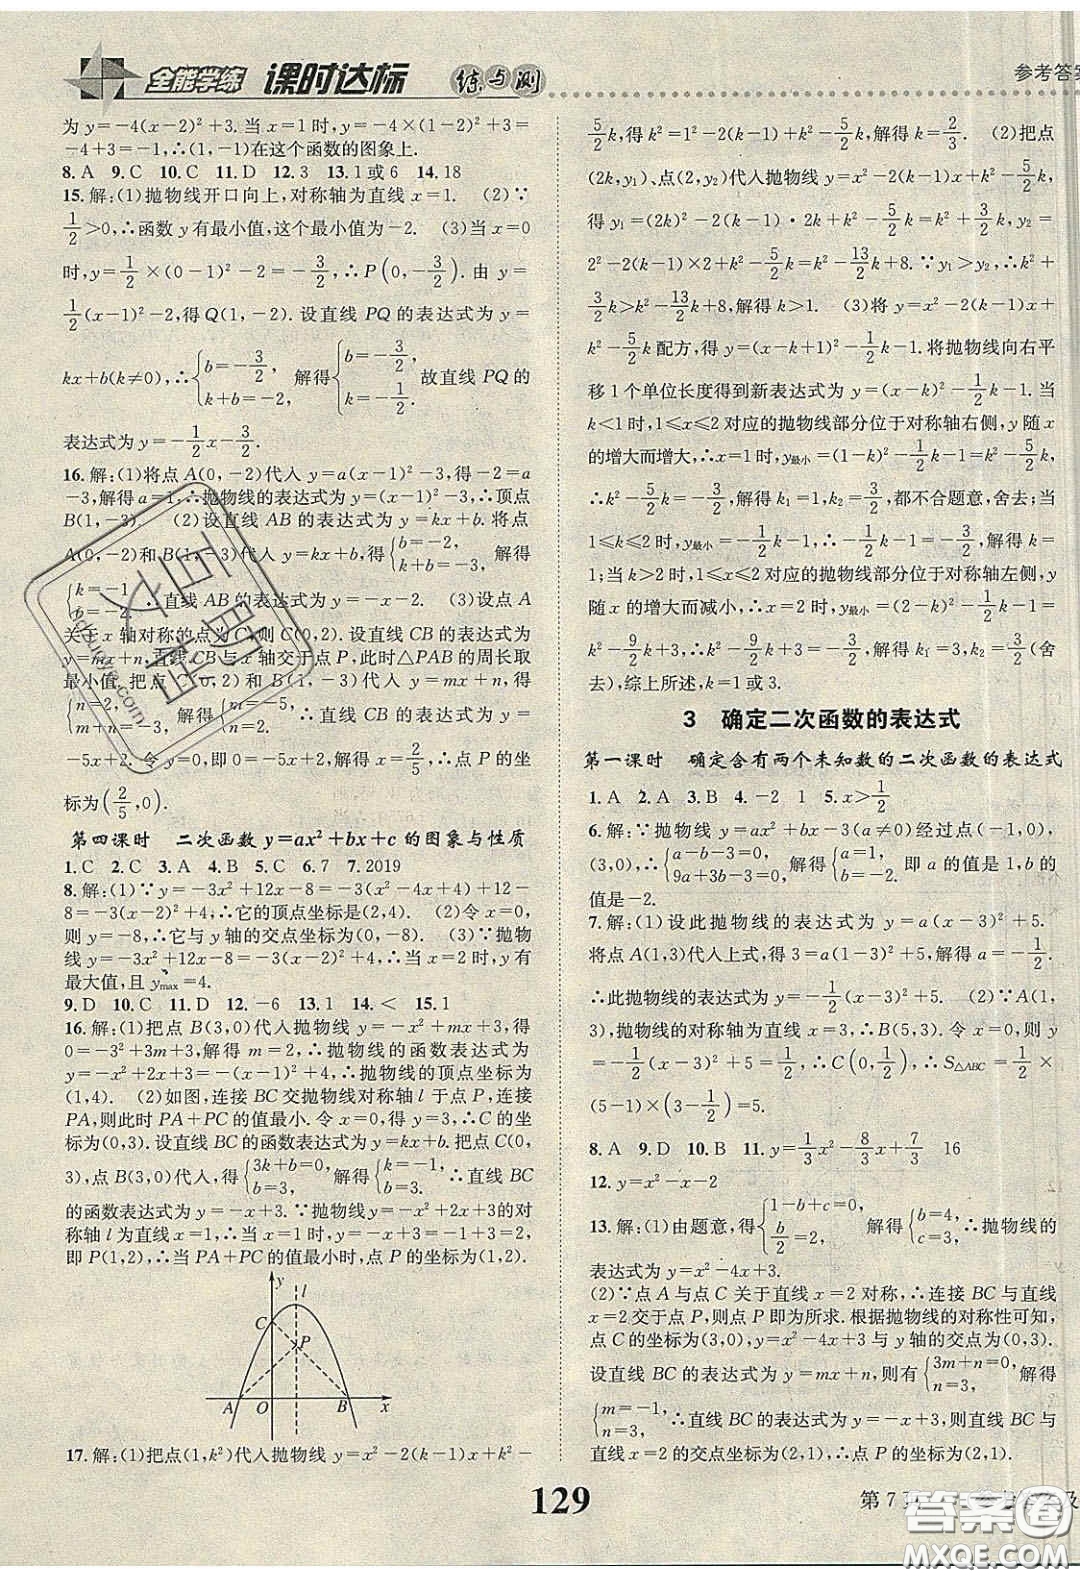 全能学练 课时达标 练与测
参考答案
为 y=-4(x-2)²+3. 当 x=1 时, y=-4×(1-2)²+3=
-4+3=-1, ∴(1,-1)在这个函数的图象上.
8. A 9. C 10. C 11. D 12. 3 13. 1或6 14. 18
15. 解:(1)抛物线开口向上,对称轴为直线 x=1. (2)∵
1/2>0, ∴函数 y 有最小值,这个最小值为-2. (3)当 x=0
时, y=1/2×(0-1)²-2=-3/2, ∴P(0,-3/2). 由 y=
1/2(x-1)²-2, 得 Q(1,-2). 设直线 PQ 的表达式为 y=
kx+b(k≠0), ∴{b=-3/2, k+b=-2, 解得{b=-3/2, k=-1/2. 故直线 PQ 的
表达式为 y=-1/2x-3/2.
16. 解:(1)将点 A(0,-2)代入 y=a(x-1)²-3, 得-2=a
-3, 解得 a=1, ∴抛物线的表达式为 y=(x-1)²-3, ∴顶点
B(1,-3). (2)设直线 AB 的表达式为 y=kx+b. 将点
A(0,-2)和 B(1,-3)代入 y=kx+b, 得{b=-2, k+b=-3, 解得
{k=-1, b=-2, ∴直线 AB 的表达式为 y=-x-2. (3)设点 A
关于 x 轴对称的点为 C, 则 C(0,2). 设直线 CB 的表达式为
y=mx+n, 直线 CB 与 x 轴交于点 P, 此时△PAB 的周长取
最小值. 把点 C(0,2)和 B(1,-3)代入 y=mx+n, 得
{n=2, m+n=-3, 解得{m=-5, n=2, ∴直线 CB 的表达式为 y=
-5x+2. 令 y=0, 则-5x+2=0, 解得 x=2/5, ∴点 P 的坐
标为(2/5,0).
第四课时 二次函数 y=ax²+bx+c 的图象与性质
1. C 2. C 3. A 4. B 5. C 6. 7 7. 2019
8. 解:(1)∵y=-3x²+12x-8=-3(x²-4x+4)+12-
8=-3(x-2)²+4, ∴它的顶点坐标是(2,4). (2)令 x=0,
则 y=-8, ∴它与 y 轴的交点坐标为(0,-8). (3)∵抛物
线 y=-3x²+12x-8=-3(x-2)²+4, ∴当 x=2 时, y 有
最大值, 且 ymax=4.
9. D 10. C 11. D 12. -6 13. 1 14. < 15. 1
16. 解:(1)把点 B(3,0)代入抛物线 y=-x²+mx+3, 得
0=-3²+3m+3, 解得 m=2, ∴抛物线的函数表达式为
y=-x²+2x+3=-(x-1)²+4, ∴抛物线的顶点坐标为
(1,4). (2)如图,连接 BC 交抛物线对称轴 l 于点 P, 连接
PA, 则此时 PA+PC 的值最小. 令 x=0, 得 y=3, ∴C 的坐
标为(0,3). 设直线 BC 的函数表达式为 y=kx+b. 把点 C(0,
3), 点 B(3,0)代入, 得{3k+b=0, b=3, 解得{k=-1, b=3, ∴直线 BC
的函数表达式为 y=-x+3. ∵抛物线 y=-x²+2x+3 的对
称轴 l 为直线 x=1, ∴当 x=1 时, y=-x+3=-1+3=2,
即 P(1,2), ∴当 PA+PC 的值最小时, 点 P 的坐标为(1,2).
y
l
C
P
A O B x
17. 解:(1)把点(1,k²)代入抛物线 y=x²-2(k-1)x+k²-
5/2k, 得 k²=1²-2(k-1)+k²-5/2k, 解得 k=2/3. (2)把点
(2k,y₁)、点(2,y₂)代入抛物线 y=x²-2(k-1)x+k²-5/2k,
得 y₁=(2k)²-2(k-1)·2k+k²-5/2k=k²+3/2k, y₂=
2²-2(k-1)×2+k²-5/2k=k²-13/2k+8. ∵y₁>y₂, ∴k²+
3/2k>k²-13/2k+8, 解得 k>1. (3)将 y=x²-2(k-1)x+
k²-5/2k 配方, 得 y=(x-k+1)²-1/2k-1. 将抛物线向右平
移 1 个单位长度得到新表达式为 y=(x-k)²-1/2k-1. 当
k<1 时, 1≤x≤2 对应的抛物线部分位于对称轴右侧, y 随 x
的增大而增大, ∴x=1 时, y最小=(1-k)²-1/2k-1=k²-5/2k,
∴k²-5/2k=-3/2, 解得 k₁=1, k₂=3/2, 都不合题意, 舍去; 当
1≤k≤2 时, y最小=-1/2k-1, ∴-1/2k-1=-3/2, 解得 k=
1; 当 k>2 时, 1≤x≤2 对应的抛物线部分位于对称轴左侧, y
随 x 的增大而减小, ∴x=2 时, y最小=(2-k)²-1/2k-1=
k²-9/2k+3, ∴k²-9/2k+3=-3/2, 解得 k₁=3, k₂=3/2(舍
去), 综上所述, k=1 或 3.
3 确定二次函数的表达式
第一课时 确定含有两个未知数的二次函数的表达式
1. A 2. A 3. B 4. -2 1 5. x>1/2
6. 解:∵抛物线 y=ax²+bx-3(a≠0)经过点(-1,0),
(3,0), ∴{a-b-3=0, 9a+3b-3=0, 解得{a=1, b=-2. 即 a 的值是 1, b 的
值是-2.
7. 解:(1)设此抛物线的表达式为 y=a(x-3)²+5.
将点 A(1,3)代入上式, 得 3=a(1-3)²+5, 解得 a=-1/2,
∴此抛物线的表达式为 y=-1/2(x-3)²+5. (2)∵A(1,
3), 抛物线的对称轴为直线 x=3, ∴B(5,3). 令 x=0, 则 y
=-1/2(x-3)²+5=1/2, ∴C(0,1/2), ∴S△ABC=1/2×
(5-1)×(3-1/2)=5.
8. A 9. D 10. B 11. y=1/3x²-8/3x+7/3 16
12. y=x²-x-2
13. 解:(1)由题意, 得{1-b+c=0, b/2=2, 解得{b=4, c=3, ∴抛物线的
表达式为 y=x²-4x+3.
(2)∵点 A 与点 C 关于直线 x=2 对称, ∴连接 BC 与直线
x=2 交于点 P, 则点 P 即为所求. 根据抛物线的对称性可知,
点 C 的坐标为(3,0), y=x²-4x+3 与 y 轴的交点为(0,3).
设直线 BC 的表达式为 y=mx+n, 则有{3m+n=0, n=3, 解得
{m=-1, n=3, ∴直线 BC 的表达式为 y=-x+3, 则直线 BC 与
直线 x=2 的交点坐标为(2,1), ∴点 P 的坐标为(2,1).
129
第 7 页
答案圈
MXQE.COM